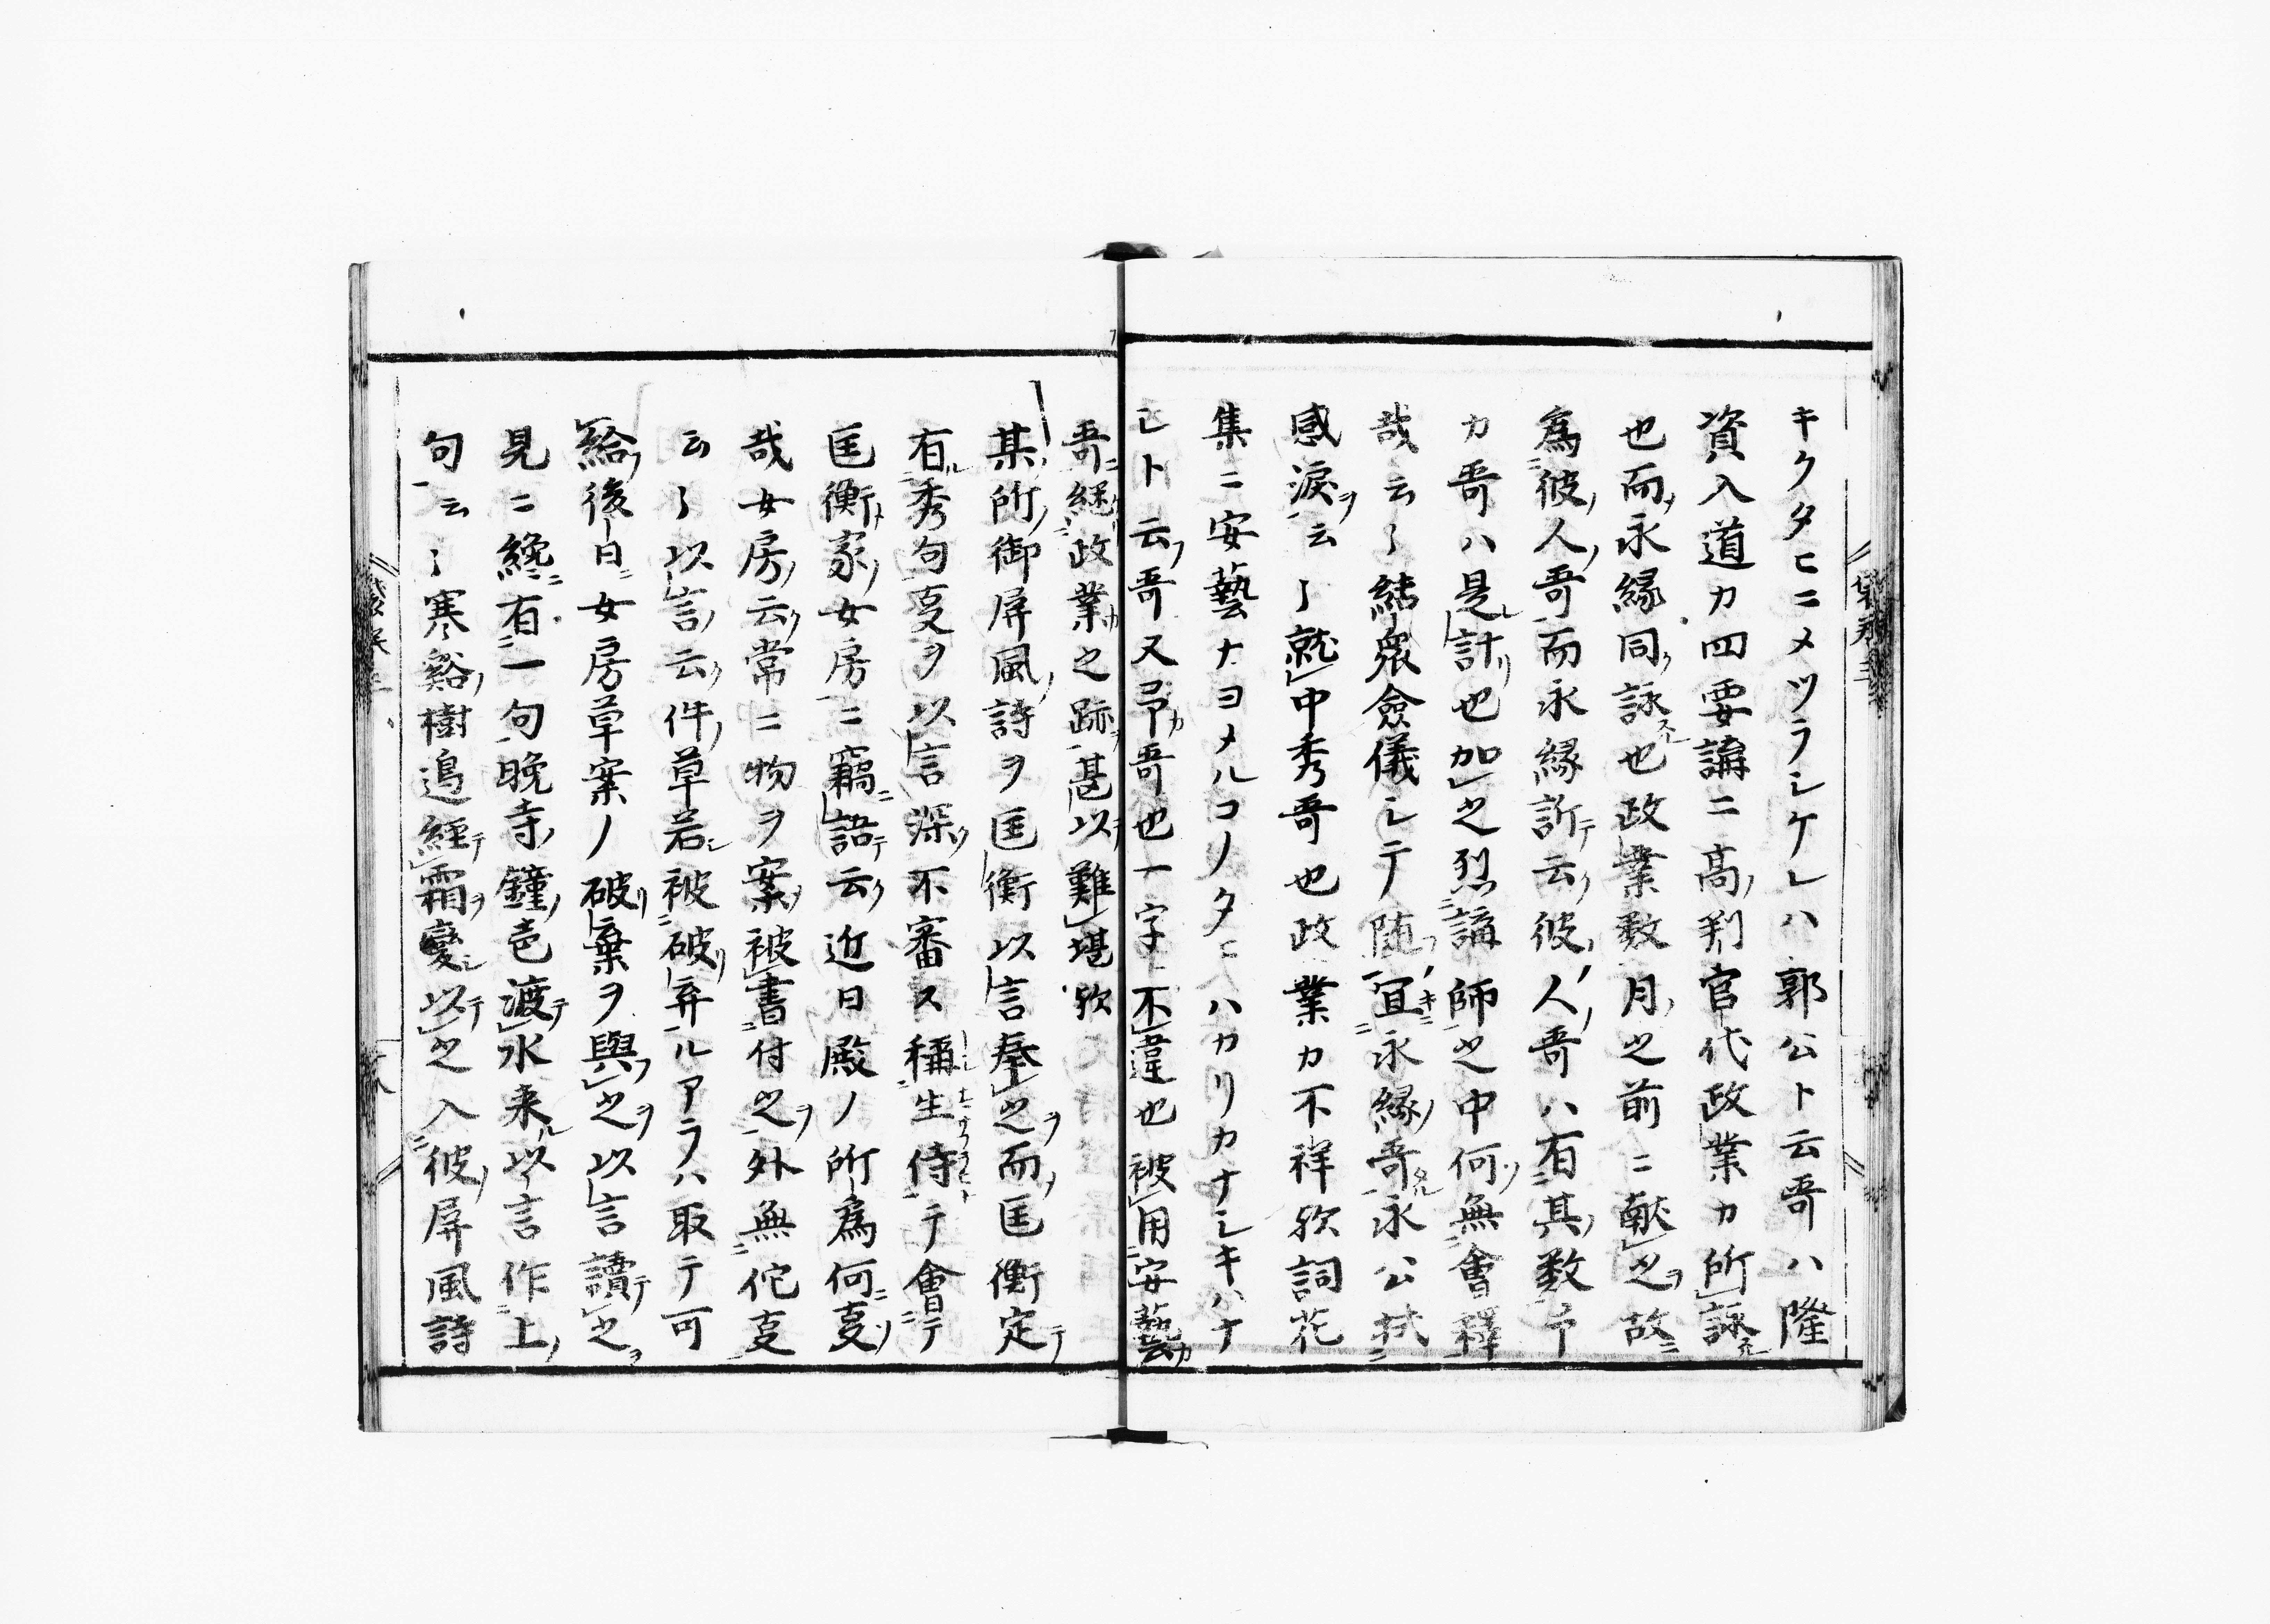 キクタヒニメツラシケレハ郭公ト云哥ハ隆
資入道カ四要講ニ高判官代政業カ所詠
也而永縁同詠也政業数月之前ニ献之故
為彼人哥而永縁訴云彼人哥ハ有其数予
カ哥ハ是計也加之烈講師之中何無會釋
哉云〻結衆僉儀シテ随宜永縁哥永公拭
感涙云〻就中秀哥也政業カ不祥歟詞花
集ニ安藝ナヨメルコノタヒハカリカナシキハナ
シト云哥又予哥也一字不違也被用安藝
哥継政業之跡甚以難堪歟
某所御屏風詩ヲ匡衡以言奉之而匡衡定
有秀句叓ヲ以言深不審ス稱生侍テ會
匡衡家女房ニ竊語云近日殿ノ所為何叓
哉女房云常ニ物ヲ案被書付之外無佗叓
云〻以言云件草若被破弃ルアラハ取テ可
給後日女房草案ノ破棄ヲ與之以言讀之
見ニ纔有一句晩寺鐘色渡水来以言作上
句云〻寒谿樹邉經霜變以之入彼屏風詩